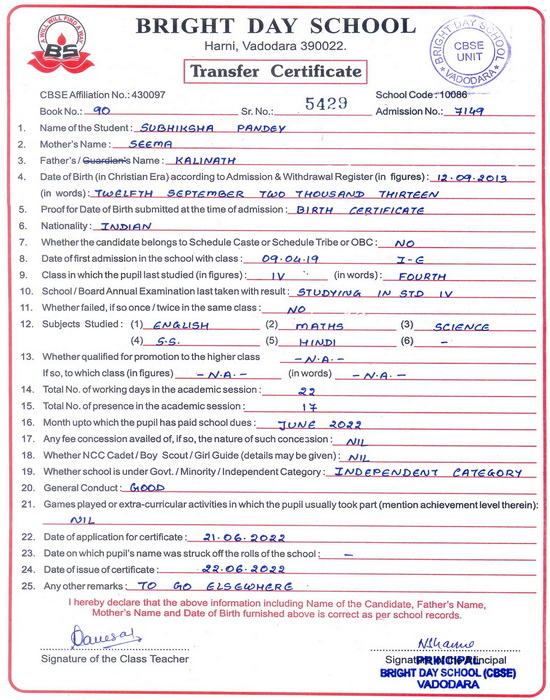 A WILL WILL FIND A WAY
BS
BRIGHT DAY SCHOOL
Harni, Vadodara 390022.
Transfer Certificate
BRIGHT DAY SCHOOL
CBSE
UNIT
VADODARA
CBSE Affiliation No.: 430097 School Code: 10086
Book No.: 90 Sr. No.: 5429 Admission No.: 7149
1. Name of the Student: SUBHIKSHA PANDEY
2. Mother's Name: SEEMA
3. Father's / Guardian's Name: KALINATH
4. Date of Birth (in Christian Era) according to Admission & Withdrawal Register (in figures): 12.09.2013
(in words): TWELFTH SEPTEMBER TWO THOUSAND THIRTEEN
5. Proof for Date of Birth submitted at the time of admission: BIRTH CERTIFICATE
6. Nationality: INDIAN
7. Whether the candidate belongs to Schedule Caste or Schedule Tribe or OBC: NO
8. Date of first admission in the school with class: 09.04.19 I-E
9. Class in which the pupil last studied (in figures): IV (in words): FOURTH
10. School / Board Annual Examination last taken with result: STUDYING IN STD IV
11. Whether failed, if so once / twice in the same class: NO
12. Subjects Studied: (1) ENGLISH (2) MATHS (3) SCIENCE
(4) S.S. (5) HINDI (6) -
13. Whether qualified for promotion to the higher class - N.A. -
If so, to which class (in figures) - N.A. - (in words) - N.A. -
14. Total No. of working days in the academic session: 22
15. Total No. of presence in the academic session: 17
16. Month upto which the pupil has paid school dues: JUNE 2022
17. Any fee concession availed of, if so, the nature of such concession: NIL
18. Whether NCC Cadet / Boy Scout / Girl Guide (details may be given): NIL
19. Whether school is under Govt. / Minority / Independent Category: INDEPENDENT CATEGORY
20. General Conduct: GOOD
21. Games played or extra-curricular activities in which the pupil usually took part (mention achievement level therein):
NIL
22. Date of application for certificate: 21.06.2022
23. Date on which pupil's name was struck off the rolls of the school: -
24. Date of issue of certificate: 22.06.2022
25. Any other remarks: TO GO ELSEWHERE
I hereby declare that the above information including Name of the Candidate, Father's Name,
Mother's Name and Date of Birth furnished above is correct as per school records.
Signature of the Class Teacher Signature of the Principal
PRINCIPAL
BRIGHT DAY SCHOOL (CBSE)
VADODARA